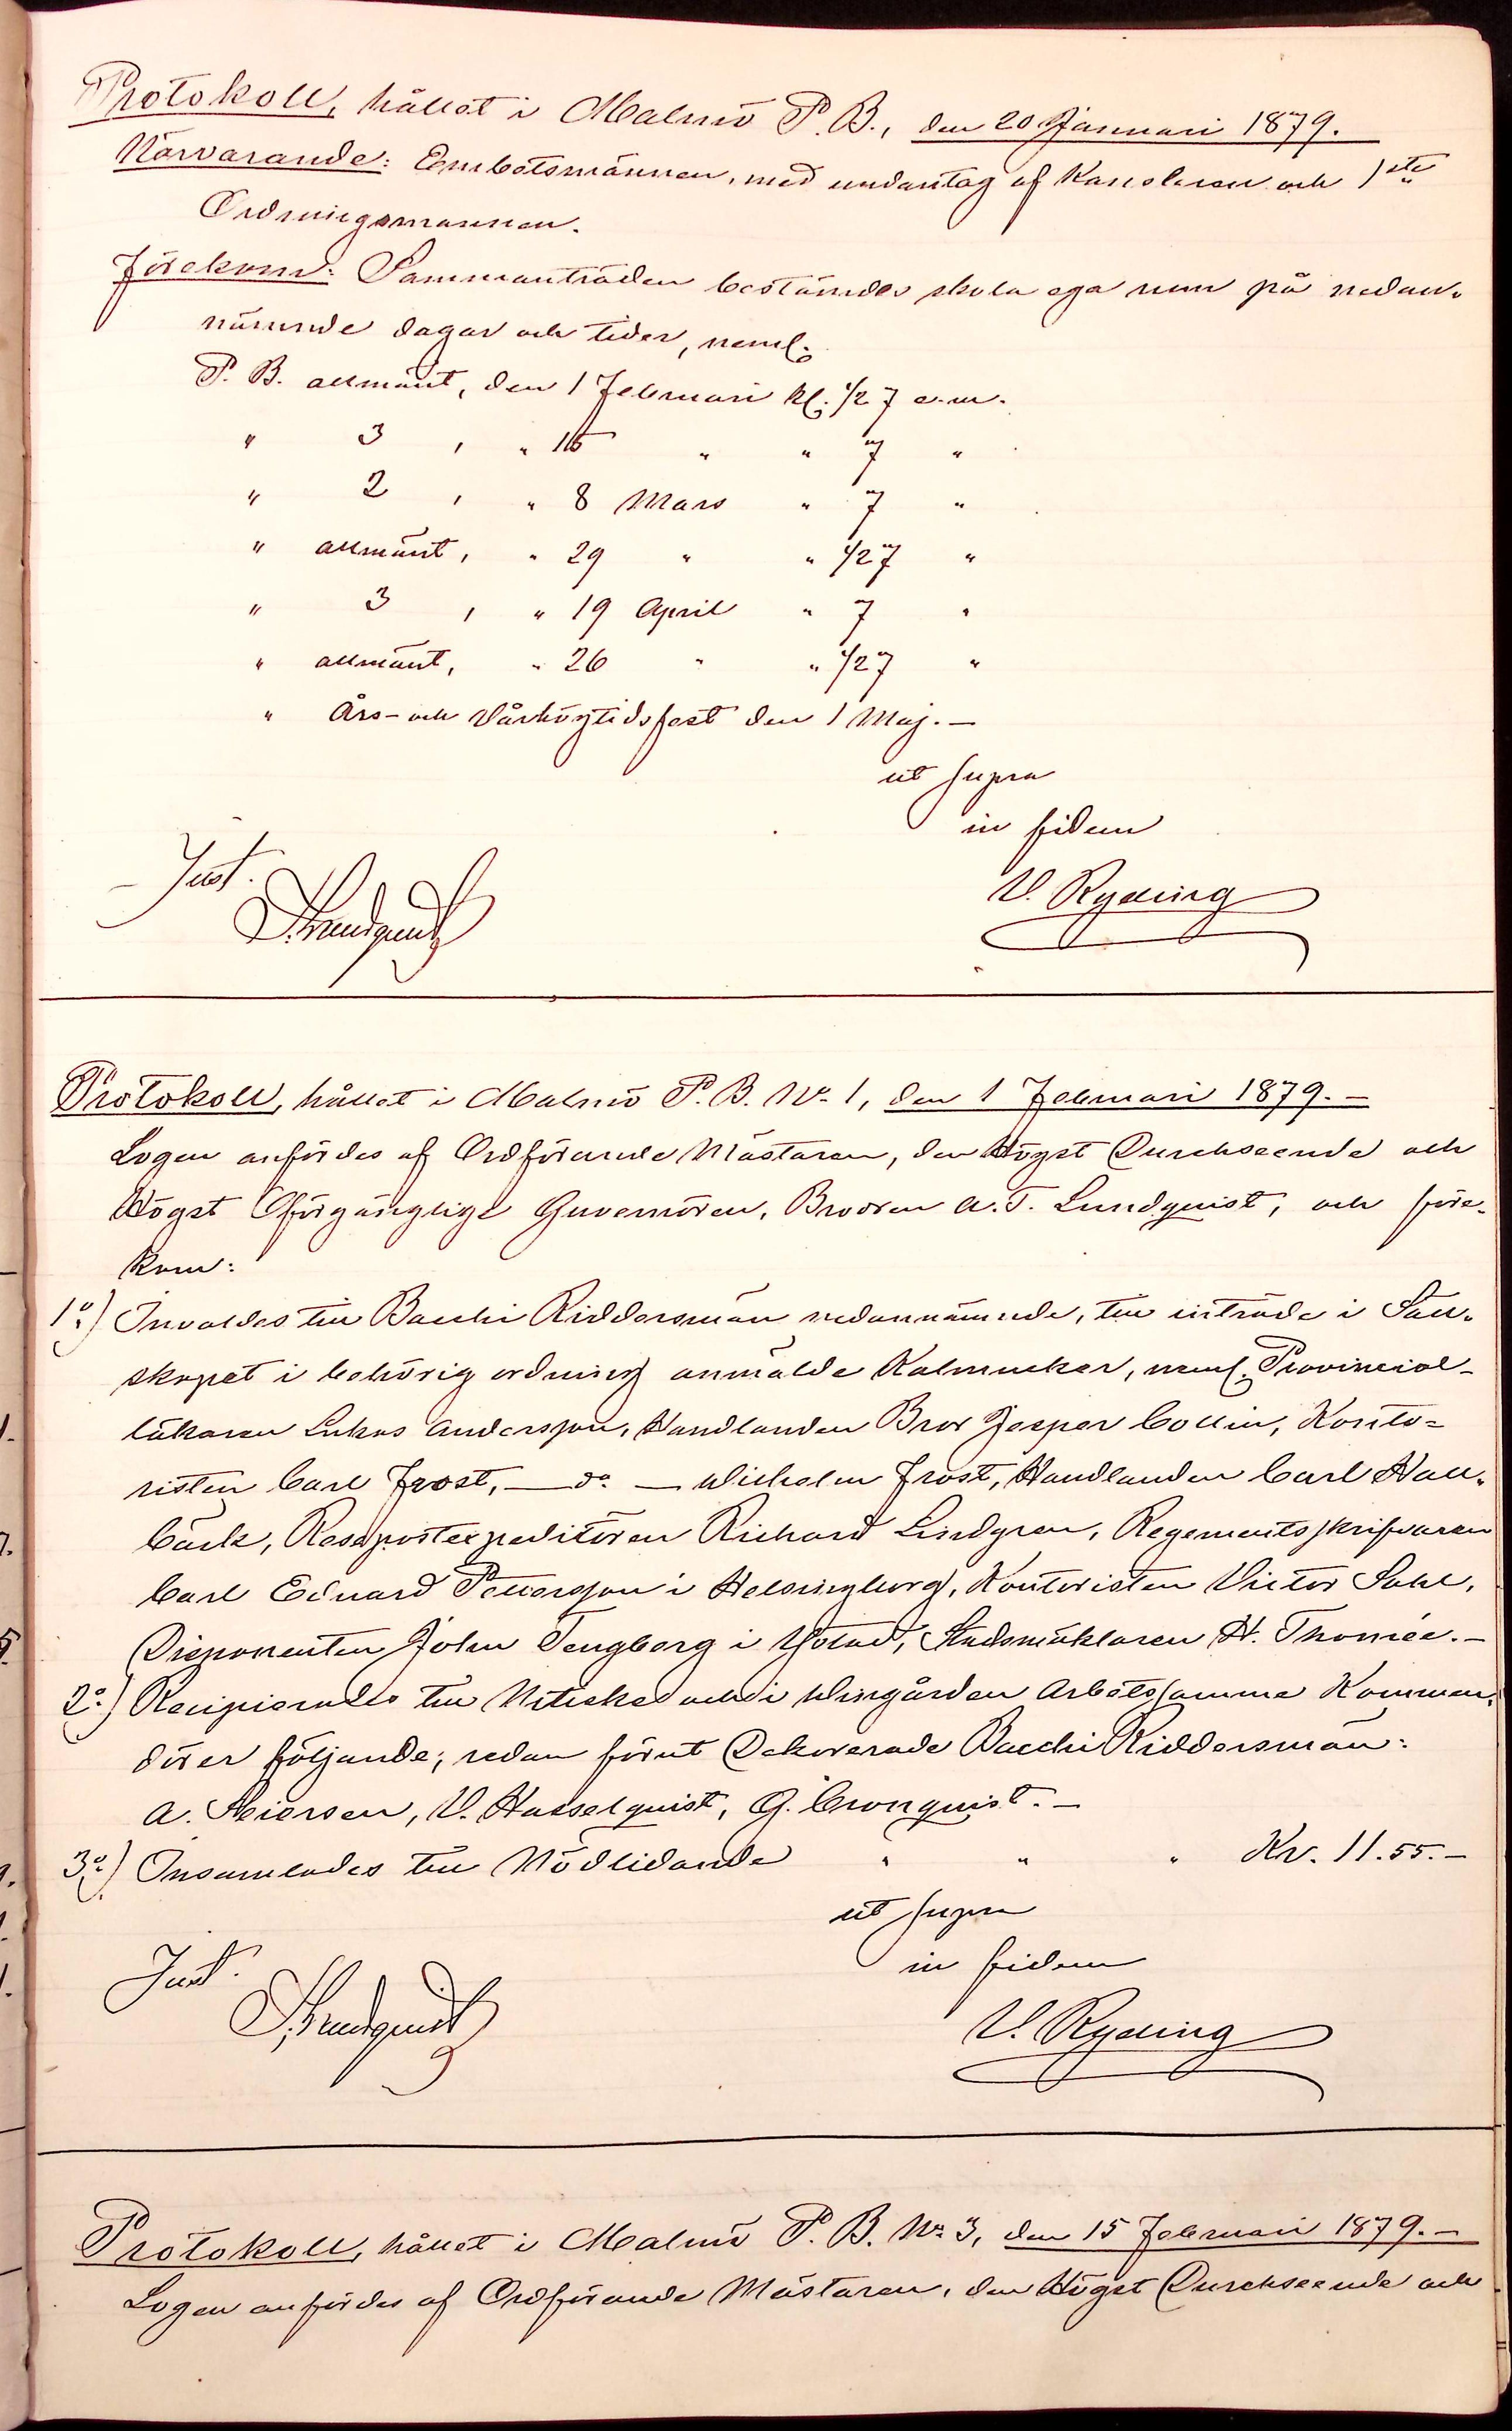 Protokoll, hållet i Malmö P. B., den 20 Januari 1879.
Närvarande: Embetsmännen, med undantag af Kansleren och 1ste
Ordningsmannen.
Förekom: Sammanträden bestämdes skola ega rum på nedan-
nämnde dagar och tider, neml:
P. B. allmänt, den 1 Februari kl: 1/2 7 e.m.
" 3 , " 15 " " 7 "
" 2 , " 8 Mars " 7 "
" allmänt, " 29 " " 1/2 7 "
" 3 , " 19 April " 7 "
" allmänt, " 26 " " 1/2 7 "
" Års- och Vårhögtidsfest den 1 Maj. —
ut supra
in fidem
Just. V. Ryding
Lundquist
Protokoll, hållet i Malmö P. B. No 1, den 1 Februari 1879. —
Logen anfördes af Ordförande Mästaren, den Högst Durchseende och
Högst Oförgänglige Guvernören, Brodren A. T. Lundquist, och före-
kom:
1o) Invaldes till Bacchi Riddersmän nedannämnde, till inträde i Säll-
skapet i behörig ordning anmälde Kalmucker, neml: Provincial-
läkaren Lukas Andersson, Handlanden Bror Jesper Collin, Konto-
risten Carl Frost, — do — Wilhelm Frost, Handlanden Carl Hall-
bäck, Resepostexpeditören Richard Lindgren, Regementsskrifvaren
Carl Eduard Pettersson i Helsingborg, Kontoristen Victor Sahl,
Disponenten John Tengberg i Ystad, Stadsmäklaren H. Thomée. —
2o) Recipierades till Nitiske och i Vingården Arbetssamme Kommen-
dörer följande, redan förut Dekorerade Bacchi Riddersmän:
A. Peiersen, V. Hasselquist, G. Cronquist. —
3o) Insamlades till Nödlidande " " " Kr. 11.55. —
ut supra
in fidem
Just. V. Ryding
Lundquist
Protokoll, hållet i Malmö P. B. No 3, den 15 Februari 1879. —
Logen anfördes af Ordförande Mästaren, den Högst Durchseende och